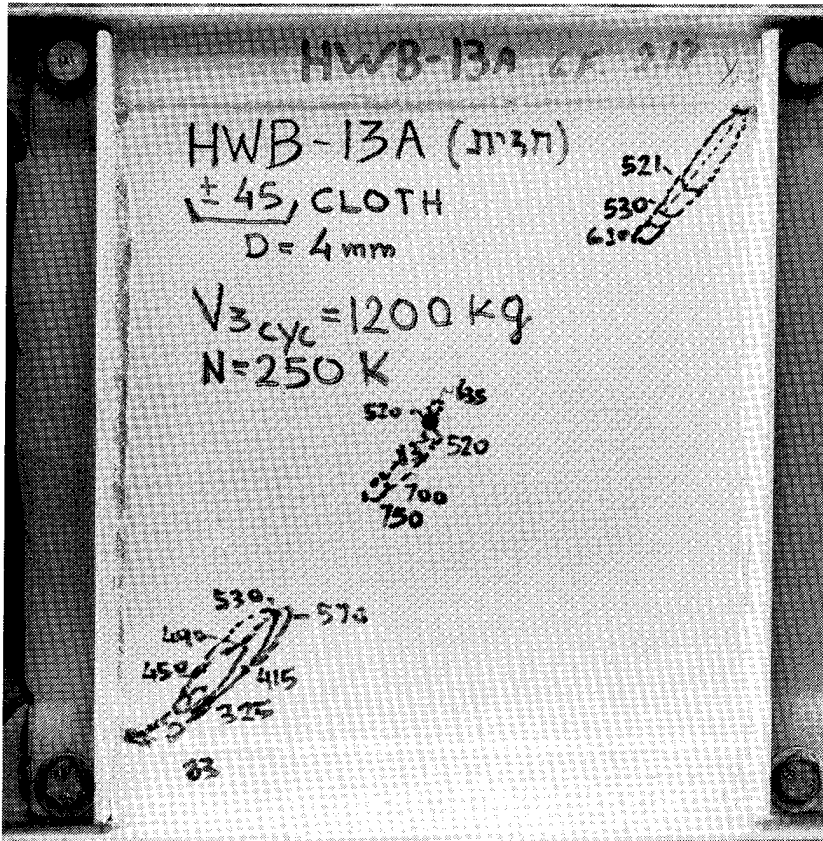 HWB-13A
HWB-13A (חזית)
± 45 CLOTH
D = 4 mm
V3cyc = 1200 kg
N = 250 K
521
530
630
635
520
520
700
750
530
570
490
450
415
325
33